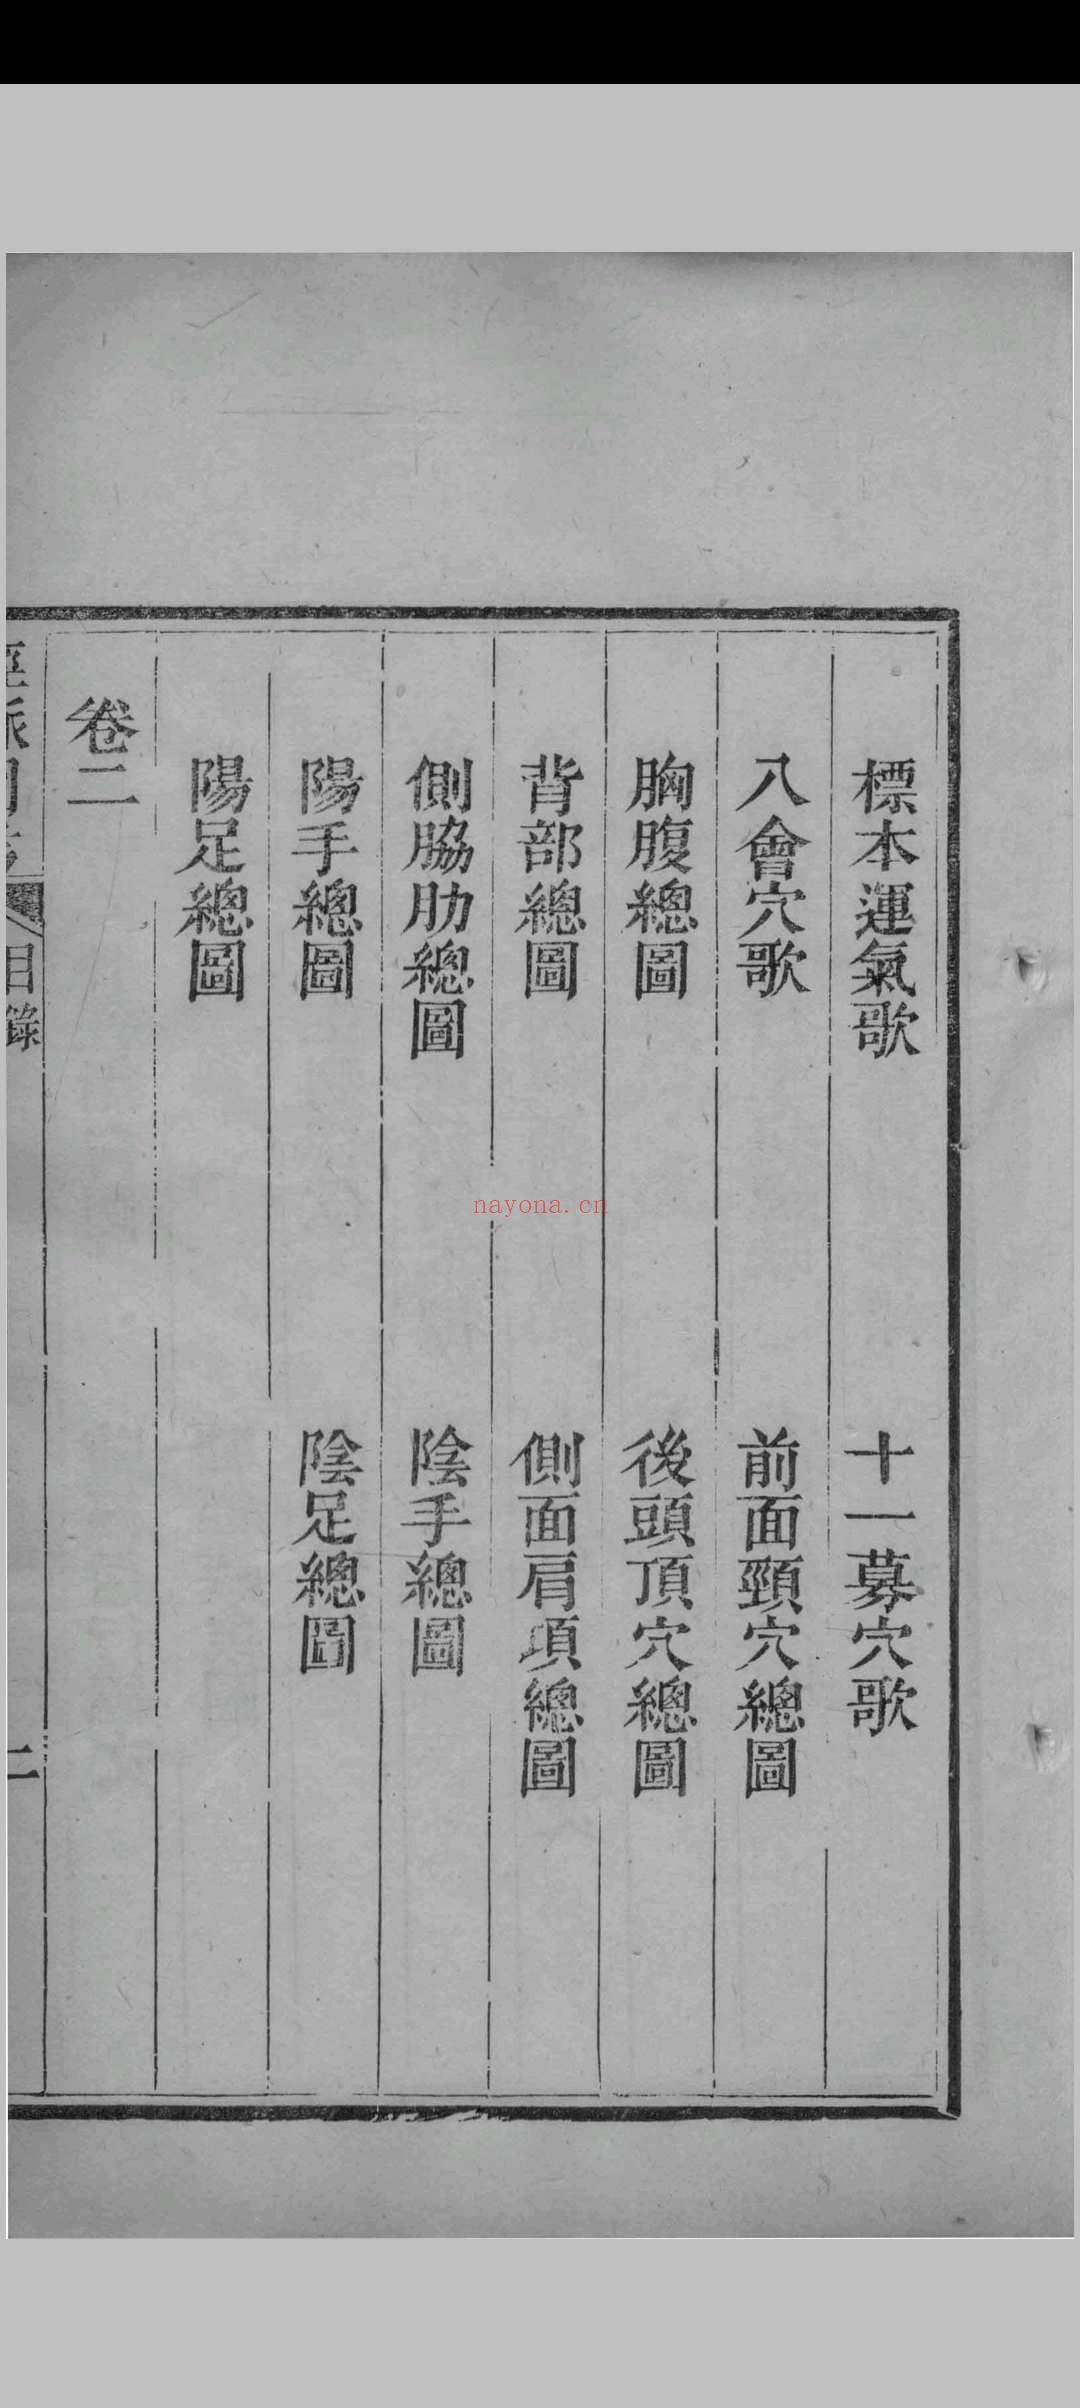 標本運氣歌 十一募穴歌
八會穴歌 前面頸穴總圖
胸腹總圖 後頭頂穴總圖
背部總圖 側面肩項總圖
側脇肋總圖 陰手總圖
陽手總圖 陰足總圖
陽足總圖
卷二
目錄 二
nayona.cn